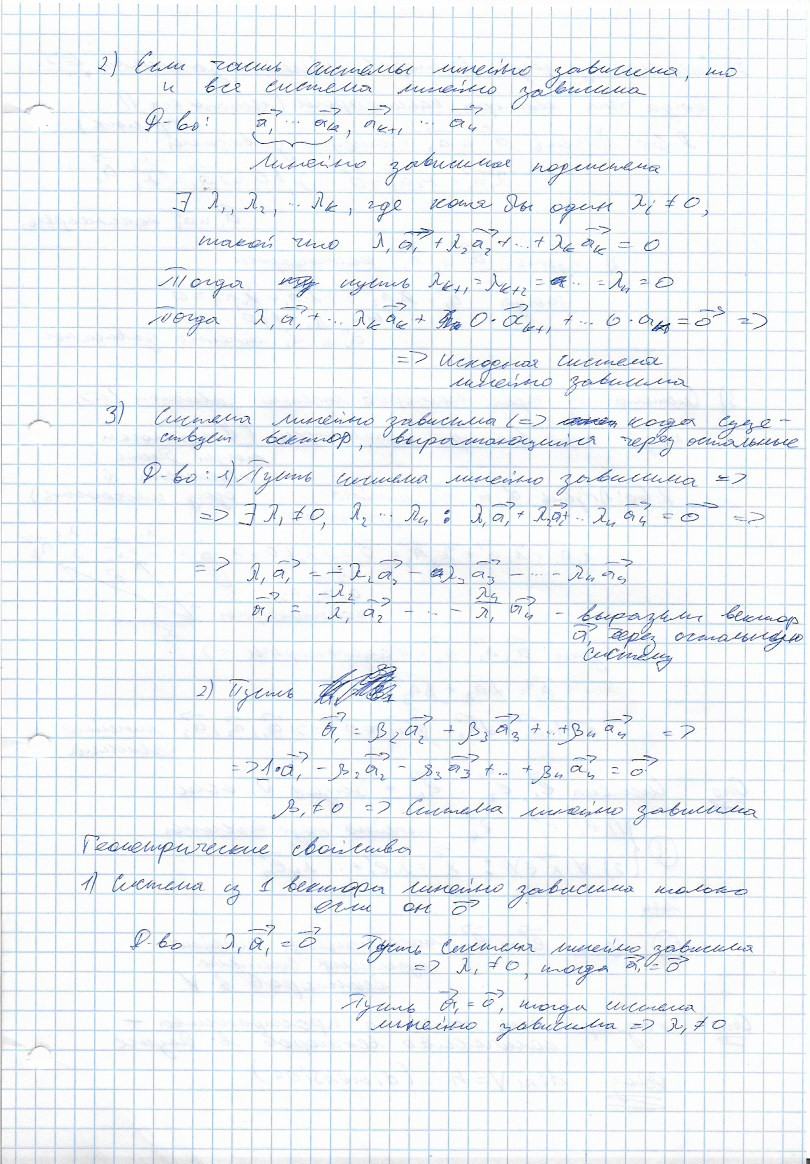 2) Если часть системы линейно зависима, то
и вся система линейно зависима
Д-во: a⃗₁ ... a⃗ₖ, a⃗ₖ₊₁ ... a⃗ₙ
линейно зависимая подсистема
∃ λ₁, λ₂, ... λₖ, где хотя бы один λᵢ ≠ 0,
такой что λ₁a⃗₁ + λ₂a⃗₂ + ... + λₖa⃗ₖ = 0
Тогда пусть λₖ₊₁ = λₖ₊₂ = ... = λₙ = 0
Тогда λ₁a⃗₁ + ... λₖa⃗ₖ + 0·a⃗ₖ₊₁ + ... 0·aₙ = 0⃗ =>
=> Исходная система
линейно зависима
3) Система линейно зависима <=> когда суще-
ствует вектор, выражающийся через остальные
Д-во: 1) Пусть система линейно зависима =>
=> ∃ λ₁ ≠ 0, λ₂ ... λₙ : λ₁a⃗₁ + λ₂a⃗₂ + ... λₙa⃗ₙ = 0⃗ =>
=> λ₁a⃗₁ = -λ₂a⃗₂ - λ₃a⃗₃ - ... - λₙa⃗ₙ
a⃗₁ = -λ₂/λ₁ a⃗₂ - ... - λₙ/λ₁ a⃗ₙ - выразили вектор
a⃗₁ через остальную
систему
2) Пусть
a⃗₁ = β₂a⃗₂ + β₃a⃗₃ + ... + βₙa⃗ₙ =>
=> 1·a⃗₁ - β₂a⃗₂ - β₃a⃗₃ + ... + βₙa⃗ₙ = 0⃗
β₁ ≠ 0 => Система линейно зависима
Геометрические свойства
1) Система из 1 вектора линейно зависима только
если он 0⃗
Д-во λ₁a⃗₁ = 0⃗ Пусть система линейно зависима
=> λ₁ ≠ 0, тогда a⃗₁ = 0⃗
Пусть a⃗₁ = 0⃗, тогда система
линейно зависима => λ₁ ≠ 0